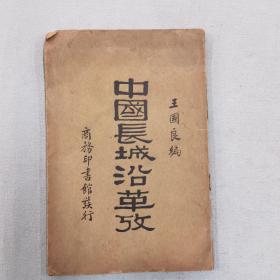 王國良編
中國長城沿革攷
商務印書館發行